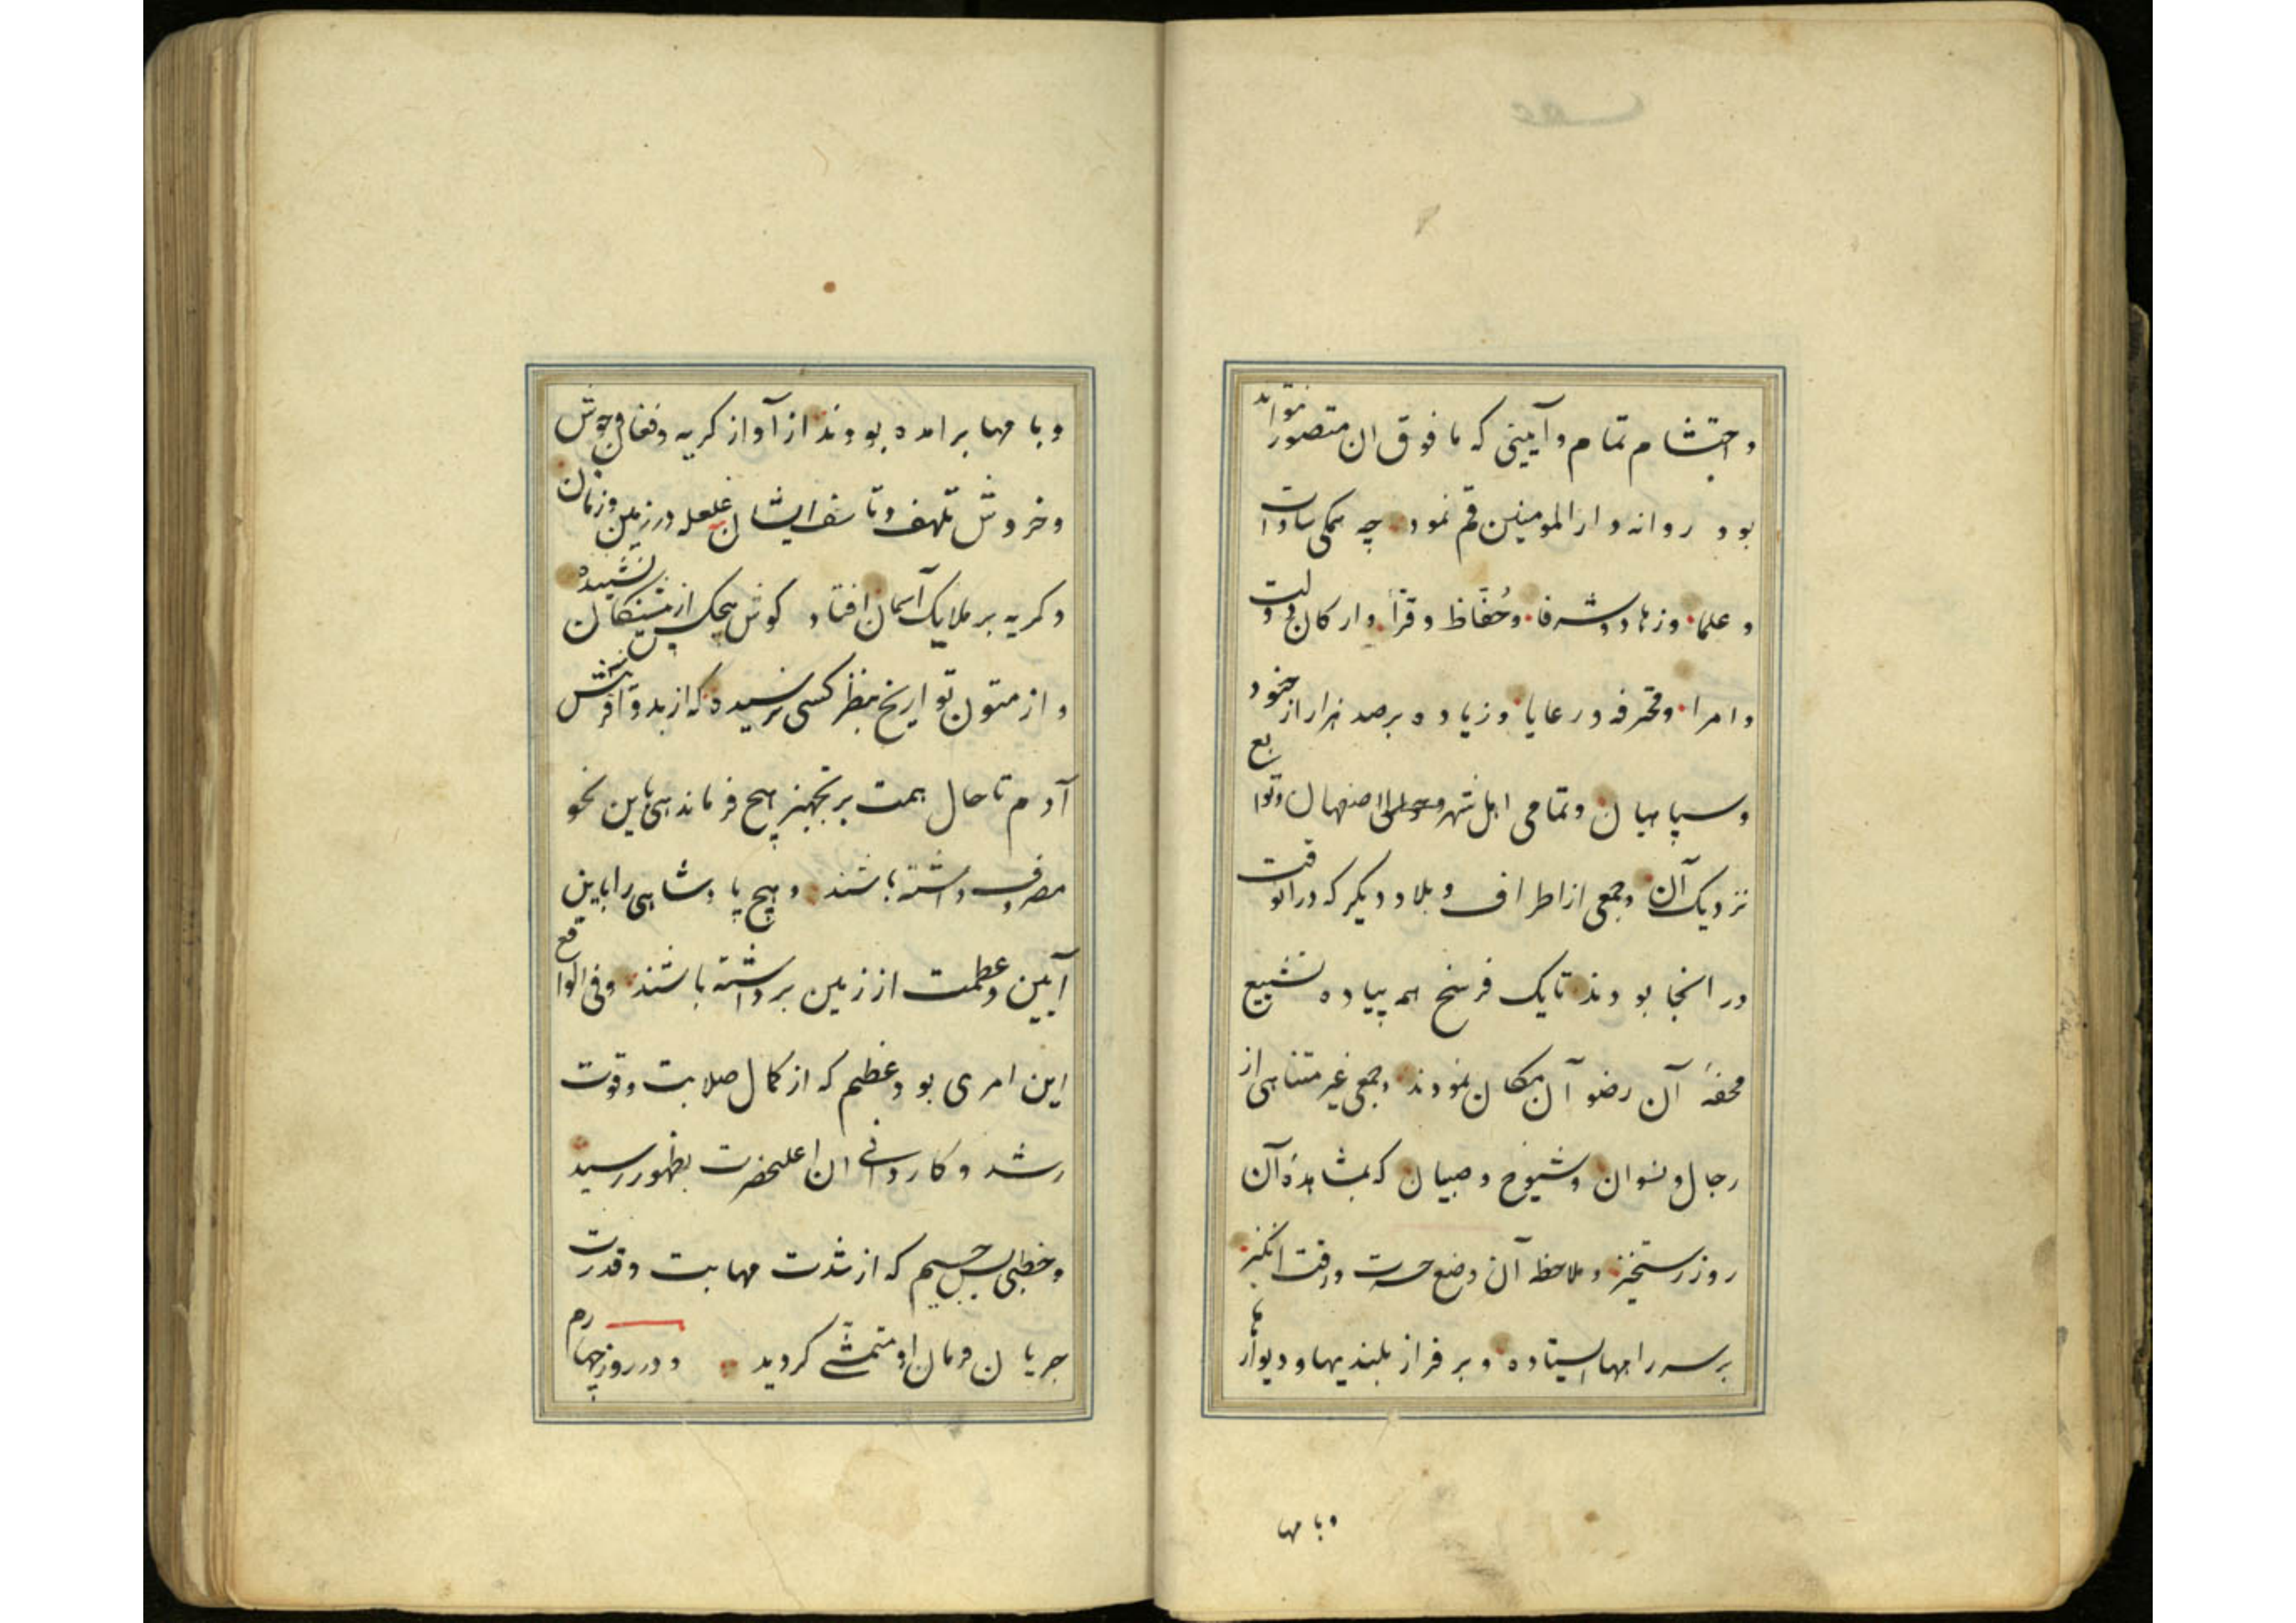 و احتشام تمام و آیینی که ما فوق ان متصور تواند
بود روانه دار المومنین قم نمود چه همکی سادات
و علما وزهاد و شرفا و حُفّاظ و قرّا و ارکان دولت
و امرا و محترفه و رعایا و زیاده بر صد هزار از جنود
و سپاهیان و تمامی اهل شهر و حوالی اصفهان و توابع
نزدیک آن و جمعی از اطراف و بلاد دیکر که در انوقت
در انجا بودند تا یک فرسخ هم پیاده تشییع
محفهٔ آن رضوآن مکان نمودند و جمعی غیر متناهی از
رجال و نسوان و شیوخ و صبیان که بمشاهدهٔ آن
روز رستخیز و ملاحظه آن وضع حسرت و رقت انکیز
بر سر راهها ایستاده و بر فراز بلندیها و دیوارها
و بامها
و بامها برامده بودند از آواز کریه و فغان و جوش
و خروش تلهف و تاسف ایشان غلغله در زمین و زمان
و کریه بر ملایک آسمان افتاد کوش هیچکس از نشنیده
و از متون تواریخ بنظر کسی نرسیده که از بدو آفرینش
آدم تا حال همت بر تجهیز هیچ فرماندهی باین نحو
مصروف داشته باشند و هیچ پادشاهی را باین
آیین و عظمت از زمین برداشته باشند و فی الواقع
این امری بود عظیم که از کمال صلابت و قوت
رشد و کاردانی ان اعلیحضرت بظهور رسید
و خطبی بس جسیم که از شدت مهابت و قدرت
جریان فرمان او متمشّی کردید و در روز چهارم